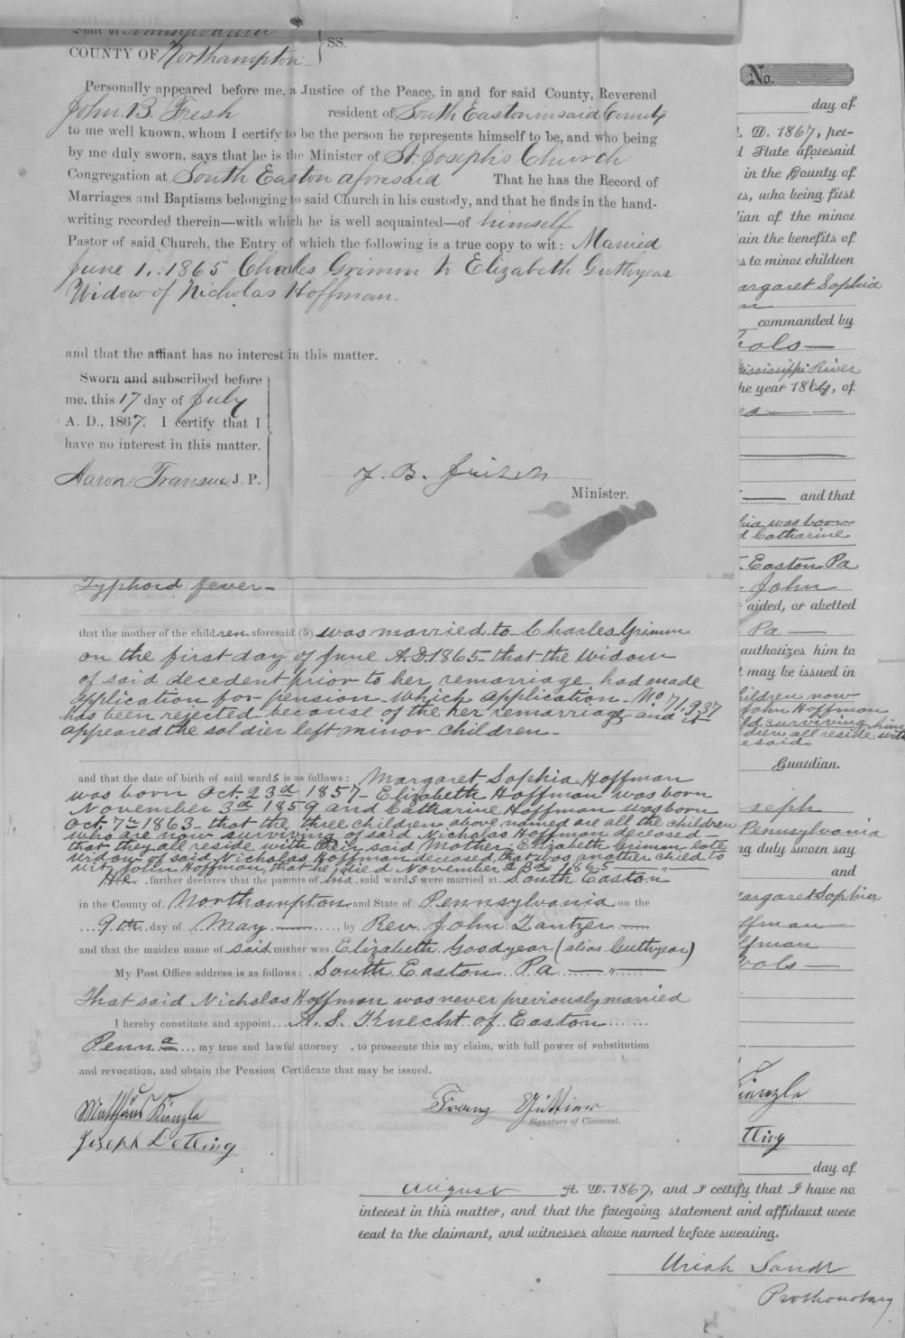 COUNTY OF Northampton } SS.
Personally appeared before me, a Justice of the Peace, in and for said County, Reverend
John B. Fresh resident of South Easton in said County
to me well known, whom I certify to be the person he represents himself to be, and who being
by me duly sworn, says that he is the Minister of St. Joseph's Church
Congregation at South Easton aforesaid That he has the Record of
Marriages and Baptisms belonging to said Church in his custody, and that he finds in the hand-
writing recorded therein—with which he is well acquainted—of himself
Pastor of said Church, the Entry of which the following is a true copy to wit: Married
June 1. 1865 Charles Grimm to Elizabeth Guthyear
Widow of Nicholas Hoffman.
and that the affiant has no interest in this matter.
Sworn and subscribed before
me, this 17 day of July
A. D., 1867. I certify that I
have no interest in this matter.
Aaron Transue J. P.
J. B. Frisch
Minister.
Typhoid fever-
that the mother of the children aforesaid (5) was married to Charles Grimm
on the first day of June A.D. 1865 - that the Widow
of said decedent prior to her remarriage had made
application for pension - which application - No 71.937
has been rejected because of the her remarriage and it
appeared the soldier left minor children -
and that the date of birth of said wards is as follows: Margaret Sophia Hoffman
was born Oct. 23d 1857 - Elizabeth Hoffman was born
November 3d 1859 and Catharine Hoffman was born
Oct. 7th 1863 - that the three children above named are all the children
who are now surviving of said Nicholas Hoffman deceased -
that they all reside with their said Mother, Elizabeth Grimm late
Widow of said Nicholas Hoffman deceased, that was another child to
wit, John Hoffman, that he died November 23d 1865
He further declares that the parents of his said wards were married at South Easton
in the County of Northampton and State of Pennsylvania on the
9th day of May by Rev. John Tantzer
and that the maiden name of said mother was Elizabeth Goodyear (alias Guthyear)
My Post Office address is as follows: South Easton Pa
That said Nicholas Hoffman was never previously married
I hereby constitute and appoint A. S. Knecht of Easton
Penna my true and lawful attorney, to prosecute this my claim, with full power of substitution
and revocation, and obtain the Pension Certificate that may be issued.
Mathäus Kienzle
Joseph Detting
Franz
Signature of Claimant.
No.
day of
D. 1867, per-
State aforesaid
in the County of
who being first
of the minor
the benefits of
to minor children
Margaret Sophia
commanded by
Mississippi River
the year 1864, of
and that
was born
Catharine
Easton Pa
John
aided, or abetted
Pa
authorizes him to
may be issued in
children now
John Hoffman
surviving him
all reside with
Guardian.
seph
Pennsylvania
duly sworn say
and
Margaret Sophia
day of
August A. D. 1867, and I certify that I have no
interest in this matter, and that the foregoing statement and affidavit were
read to the claimant, and witnesses above named before swearing.
Uriah Sandt
Prothonotary